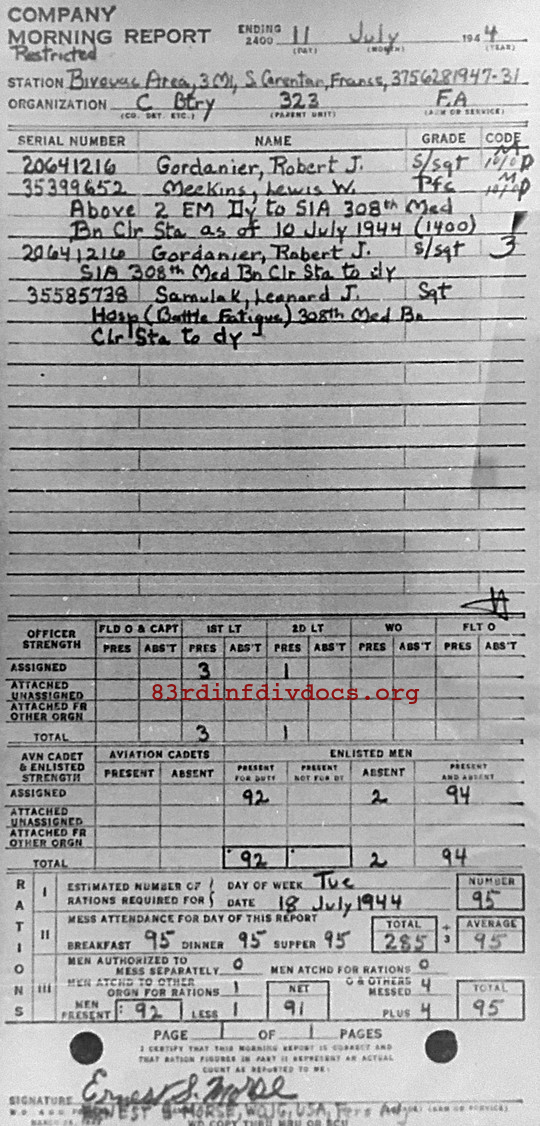 COMPANY
MORNING REPORT ENDING 2400 11 July 1944
(DAY) (MONTH) (YEAR)
Restricted
STATION Bivouac Area, 3 Mi, S Carentan, France, 3756281947-31
ORGANIZATION C Btry 323 F.A
(CO. DET. ETC.) (PARENT UNIT) (ARM OR SERVICE)
SERIAL NUMBER NAME GRADE CODE
20641216 Gordanier, Robert J. S/sgt
35399652 Meekins, Lewis W. Pfc
Above 2 EM Dy to SIA 308th Med
Bn Clr Sta as of 10 July 1944 (1400)
20641216 Gordanier, Robert J. S/sgt 3
SIA 308th Med Bn Clr Sta to dy
35585738 Samulak, Leonard J. Sgt
Hosp (Battle Fatigue) 308th Med Bn
Clr Sta to dy
OFFICER STRENGTH FLD O & CAPT 1ST LT 2D LT WO FLT O
PRES ABS'T PRES ABS'T PRES ABS'T PRES ABS'T PRES ABS'T
ASSIGNED 3 1
ATTACHED UNASSIGNED
83rdinfdivdocs.org
ATTACHED FR OTHER ORGN
TOTAL 3 1
AVN CADET & ENLISTED STRENGTH AVIATION CADETS ENLISTED MEN
PRESENT ABSENT PRESENT FOR DUTY PRESENT NOT FOR DY ABSENT PRESENT AND ABSENT
ASSIGNED 92 2 94
ATTACHED UNASSIGNED
ATTACHED FR OTHER ORGN
TOTAL 92 2 94
RATIONS
I ESTIMATED NUMBER OF RATIONS REQUIRED FOR DAY OF WEEK Tue NUMBER
DATE 18 July 1944 95
II MESS ATTENDANCE FOR DAY OF THIS REPORT TOTAL ÷ 3 AVERAGE
BREAKFAST 95 DINNER 95 SUPPER 95 285 95
III MEN AUTHORIZED TO MESS SEPARATELY 0 MEN ATCHD FOR RATIONS 0
MEN ATCHD TO OTHER ORGN FOR RATIONS 1 NET O & OTHERS MESSED 4 TOTAL
MEN PRESENT 92 LESS 1 91 PLUS 4 95
PAGE 1 OF 1 PAGES
I CERTIFY THAT THIS MORNING REPORT IS CORRECT AND
THAT RATION FIGURES IN PART II REPRESENT AN ACTUAL
COUNT AS REPORTED TO ME:
SIGNATURE Ernest S. Morse
ERNEST S MORSE, WOJG, USA, Pers Adj